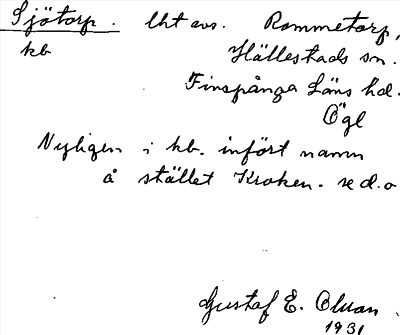 Sjötorp. lht avs. Rommetorp,
kb Hällestads sn.
Finspånga Läns hd.
Ögl
Nyligen i kb. infört namn
å stället Kroken. se d.o
Gustaf E. Olsson.
1931